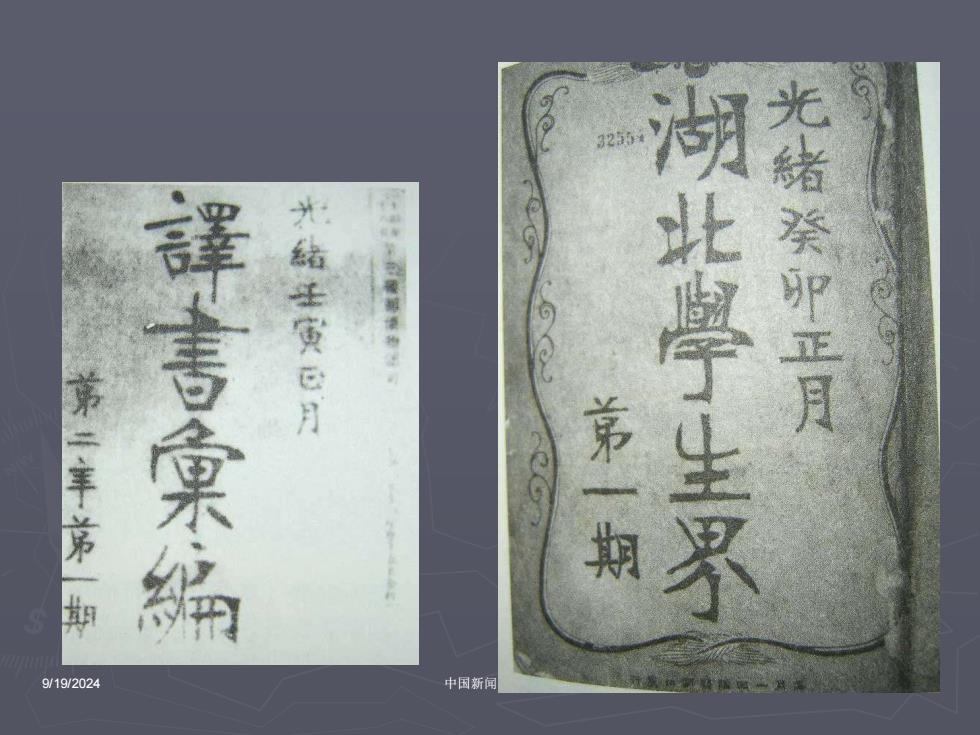 光緒壬寅正月
譯書彙編
第二年第一期
光緒癸卯正月
湖北學生界
第一期
32554
9/19/2024
中国新闻